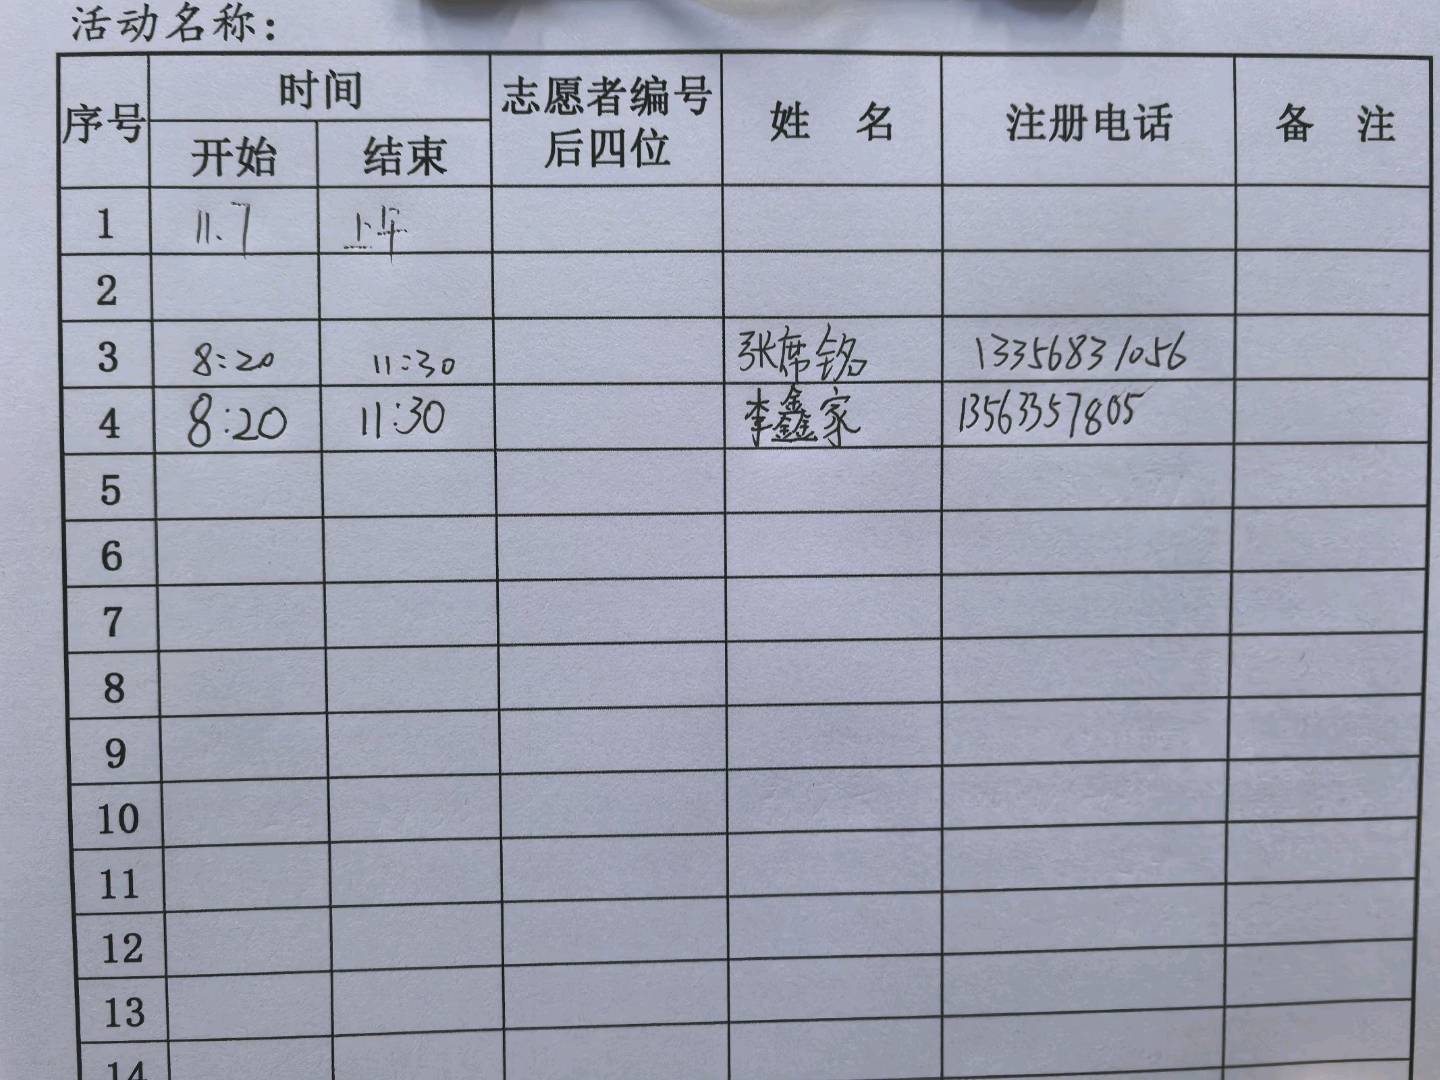 活动名称：
序号 时间 志愿者编号后四位 姓 名 注册电话 备 注
开始 结束
1 11.7 上午
2
3 8:20 11:30 张席铭 13356831056
4 8:20 11:30 李鑫家 13563357805
5
6
7
8
9
10
11
12
13
14